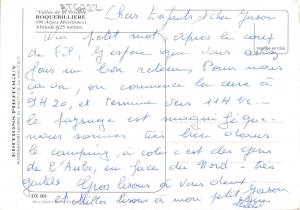 "Vallée de la
ROQUEBILLIERE
(06-Alpes Maritimes)
Altitude 625 mètres.
Chers Enfants, cher Jason
Un petit mot, après le coup
de fil, j'espère que vous avez
fait un bon retour, Pour nous
ça va, on commence la cure à
9H20, et termine vers 11H¼.
le paysage est magnifique
nous sommes très bien dans
le camping, à côté c'est des gens
de l'Aube, en face du Nord - très
gentils Gros bisous à Vous deux
et Milles bisous à mon petit Jason
EDITIONS PHOTOGUY
DX 101